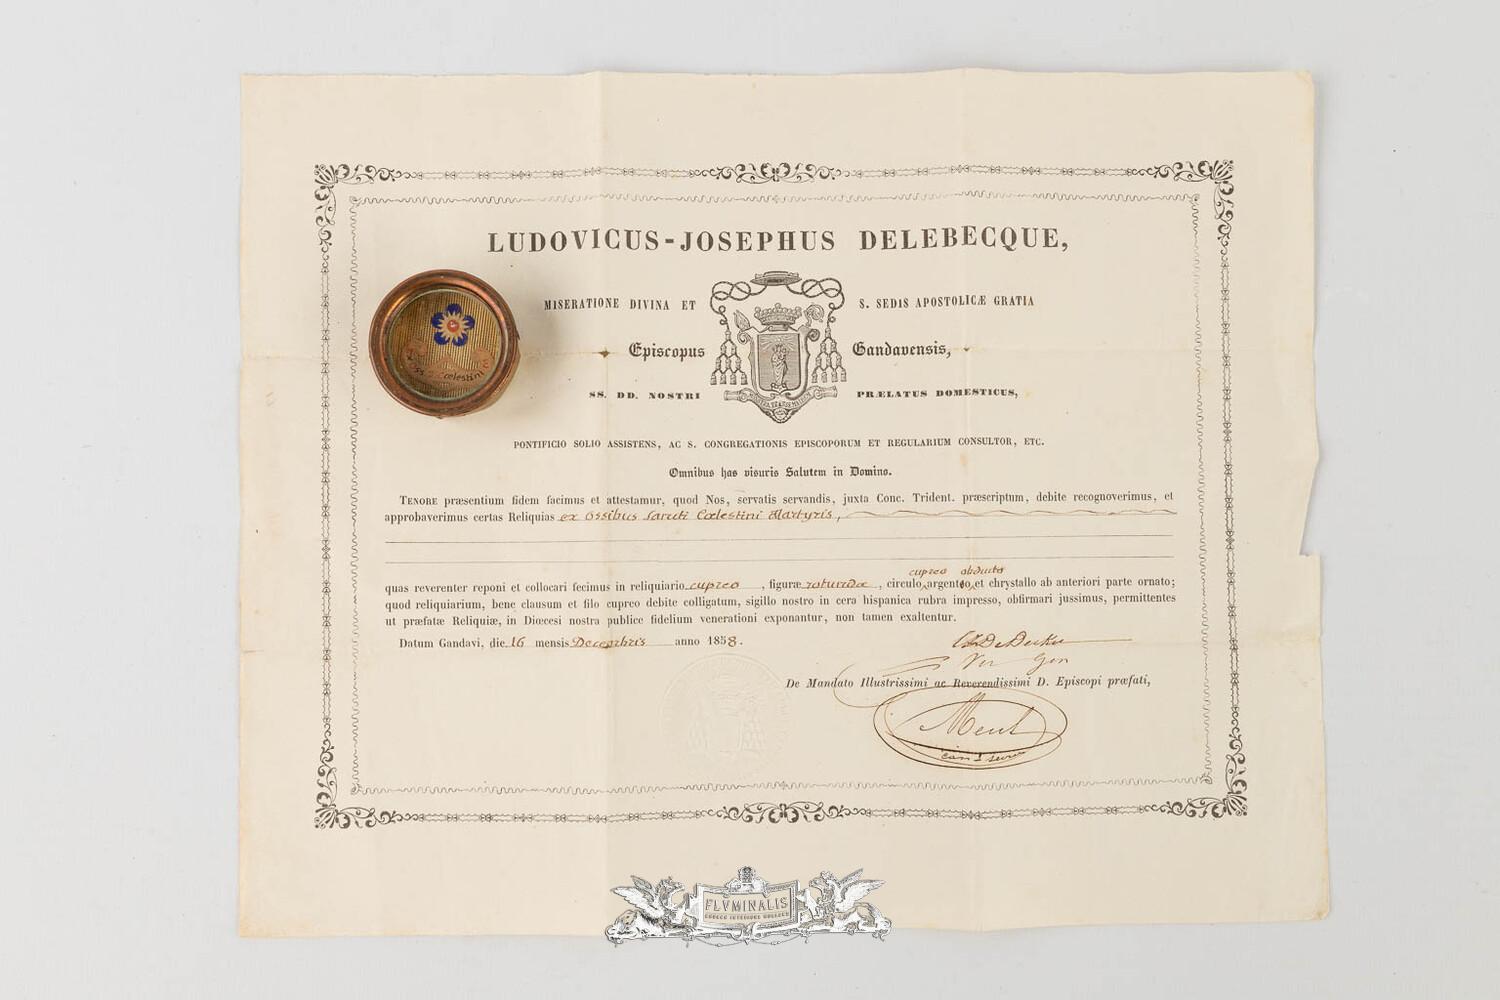 LUDOVICUS-JOSEPHUS DELEBECQUE,
MISERATIONE DIVINA ET S. SEDIS APOSTOLICÆ GRATIA
Episcopus Gandavensis,
SS. DD. NOSTRI PRÆLATUS DOMESTICUS,
PONTIFICIO SOLIO ASSISTENS, AC S. CONGREGATIONIS EPISCOPORUM ET REGULARIUM CONSULTOR, ETC.
Omnibus has visuris Salutem in Domino.
TENORE præsentium fidem facimus et attestamur, quod Nos, servatis servandis, juxta Conc. Trident. præscriptum, debite recognoverimus, et
approbaverimus certas Reliquias ex Ossibus Sancti Cœlestini Martyris,
cupreo obducto
quas reverenter reponi et collocari fecimus in reliquiario cupreo, figuræ rotundæ, circulo argenteo, et chrystallo ab anteriori parte ornato;
quod reliquiarium, bene clausum et filo cupreo debite colligatum, sigillo nostro in cera hispanica rubra impresso, obfirmari jussimus, permittentes
ut præfatæ Reliquiæ, in Diœcesi nostra publice fidelium venerationi exponantur, non tamen exaltentur.
Datum Gandavi, die 16 mensis Decembris anno 1858.
Vic Gen
De Mandato Illustrissimi ac Reverendissimi D. Episcopi præfati,
S. Cœlestini
FLVMINALIS